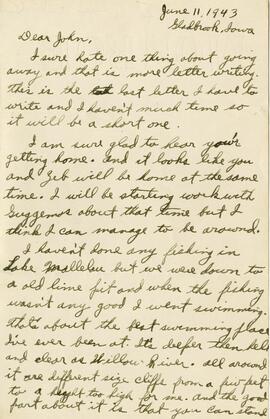 June 11, 1943
Gladbrook, Iowa
Dear John,
I sure hate one thing about going
away and that is more letter writing.
this is the last letter I have to
write and I haven't much time so
it will be a short one.
I am sure glad to hear you're
getting home. and it looks like you
and Zeb will be home at the same
time. I will be starting work with
Guggenos about that time but I
think I can manage to be around.
I haven't done any fishing in
Lake but we were down to
a old lime pit and when the fishing
wasn't any good I went swimming.
that's about the best swimming place
I've ever been at. It's deeper then hell
and clear as Willow River. all around
it are different size cliffs from a few feet
to a height too high for me. and the good
part about it is that you can stay